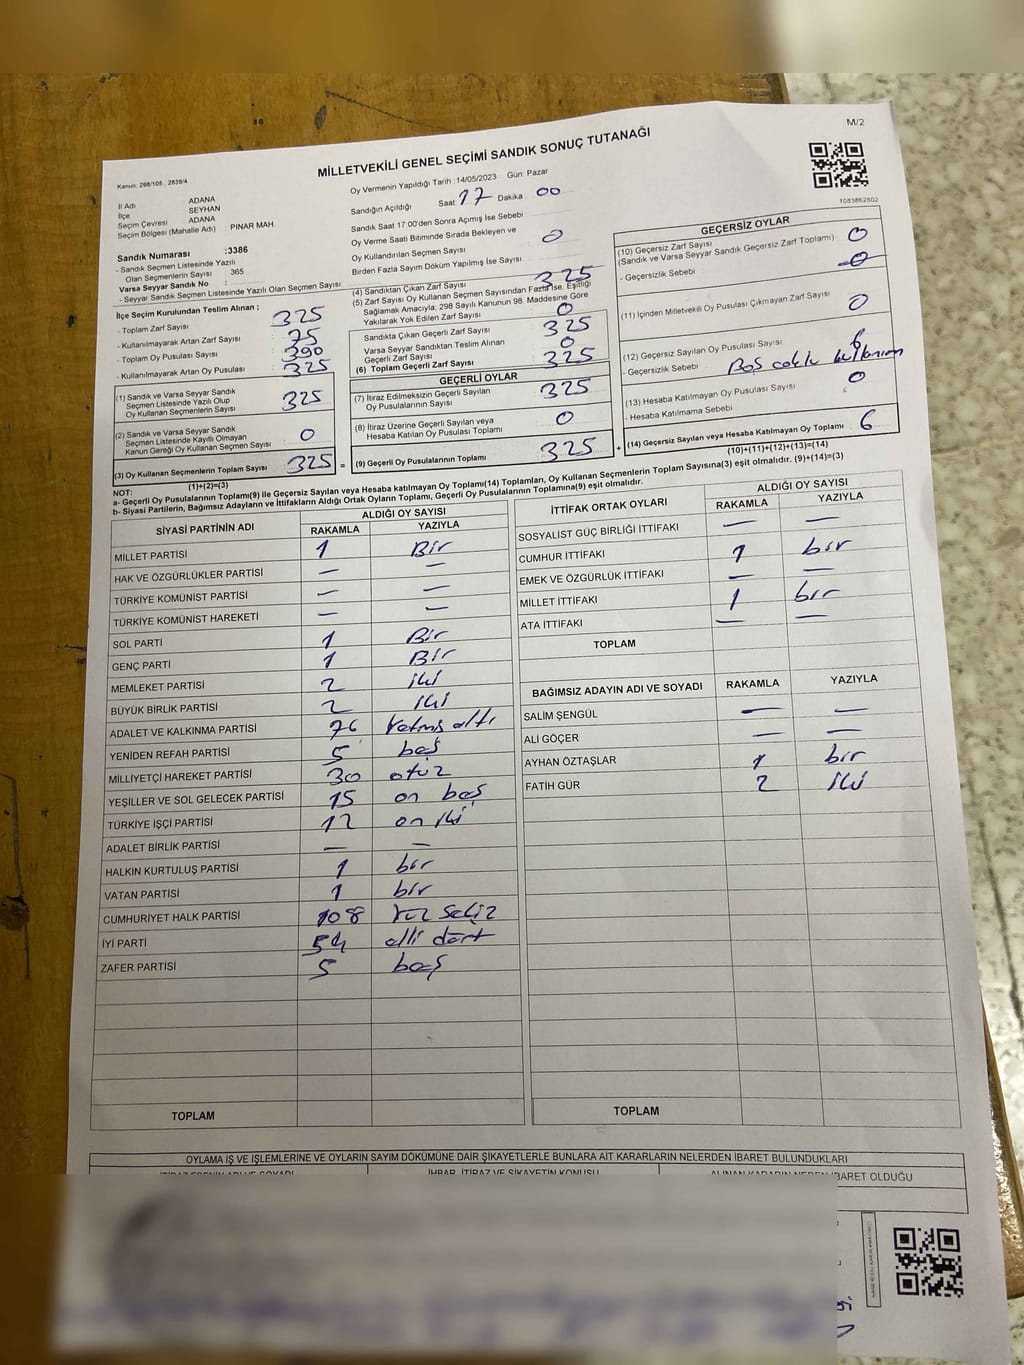 M/2
MİLLETVEKİLİ GENEL SEÇİMİ SANDIK SONUÇ TUTANAĞI
Kanun: 298/105, 2839/4
1083862802
İl Adı ADANA
İlçe SEYHAN
Seçim Çevresi ADANA
Seçim Bölgesi (Mahalle Adı) : PINAR MAH
Sandık Numarası :3386
- Sandık Seçmen Listesinde Yazılı
Olan Seçmenlerin Sayısı : 365
Varsa Seyyar Sandık No :
- Seyyar Sandık Seçmen Listesinde Yazılı Olan Seçmen Sayısı
Oy Vermenin Yapıldığı Tarih :14/05/2023 Gün: Pazar
Sandığın Açıldığı Saat 17 Dakika 00
Sandık Saat 17.00'den Sonra Açımış İse Sebebi
Oy Verme Saati Bitiminde Sırada Bekleyen ve
Oy Kullandırılan Seçmen Sayısı : 0
Birden Fazla Sayım Döküm Yapılmış İse Sayısı :
İlçe Seçim Kurulundan Teslim Alınan :
- Toplam Zarf Sayısı : 325
- Kullanılmayarak Artan Zarf Sayısı : 75
- Toplam Oy Pusulası Sayısı : 390
- Kullanılmayarak Artan Oy Pusulası : 325
(1) Sandık ve Varsa Seyyar Sandık
Seçmen Listesinde Yazılı Olup
Oy Kullanan Seçmenlerin Sayısı : 325
(2) Sandık ve Varsa Seyyar Sandık
Seçmen Listesinde Kayıtlı Olmayan
Kanun Gereği Oy Kullanan Seçmen Sayısı : 0
(3) Oy Kullanan Seçmenlerin Toplam Sayısı : 325 =
(1)+(2)=(3)
(4) Sandıktan Çıkan Zarf Sayısı : 325
(5) Zarf Sayısı Oy Kullanan Seçmen Sayısından Fazla ise, Eşitliği
Sağlamak Amacıyla, 298 Sayılı Kanunun 98. Maddesine Göre
Yakılarak Yok Edilen Zarf Sayısı : 0
Sandıkta Çıkan Geçerli Zarf Sayısı : 325
Varsa Seyyar Sandıktan Teslim Alınan
Geçerli Zarf Sayısı : 0
(6) Toplam Geçerli Zarf Sayısı : 325
GEÇERLİ OYLAR
(7) İtiraz Edilmeksizin Geçerli Sayılan
Oy Pusulalarının Sayısı : 325
(8) İtiraz Üzerine Geçerli Sayılan veya
Hesaba Katılan Oy Pusulası Toplamı : 0
(9) Geçerli Oy Pusulalarının Toplamı : 325 +
GEÇERSİZ OYLAR
(10) Geçersiz Zarf Sayısı : 0
(Sandık ve Varsa Seyyar Sandık Geçersiz Zarf Toplamı)
- Geçersizlik Sebebi : 0
(11) İçinden Milletvekili Oy Pusulası Çıkmayan Zarf Sayısı : 0
(12) Geçersiz Sayılan Oy Pusulası Sayısı : 6
- Geçersizlik Sebebi : Boş
(13) Hesaba Katılmayan Oy Pusulası Sayısı : 0
- Hesaba Katılmama Sebebi :
(14) Geçersiz Sayılan veya Hesaba Katılmayan Oy Toplamı : 6
(10)+(11)+(12)+(13)=(14)
NOT:
a- Geçerli Oy Pusulalarının Toplamı(9) ile Geçersiz Sayılan veya Hesaba katılmayan Oy Toplamı(14) Toplamları, Oy Kullanan Seçmenlerin Toplam Sayısına(3) eşit olmalıdır. (9)+(14)=(3)
b- Siyasi Partilerin, Bağımsız Adayların ve İttifakların Aldığı Ortak Oyların Toplamı, Geçerli Oy Pusulalarının Toplamına(9) eşit olmalıdır.
SİYASİ PARTİNİN ADI ALDIĞI OY SAYISI
RAKAMLA YAZIYLA
MİLLET PARTİSİ 1 Bir
HAK VE ÖZGÜRLÜKLER PARTİSİ — —
TÜRKİYE KOMÜNİST PARTİSİ — —
TÜRKİYE KOMÜNİST HAREKETİ — —
SOL PARTİ 1 Bir
GENÇ PARTİ 1 Bir
MEMLEKET PARTİSİ 2 iki
BÜYÜK BİRLİK PARTİSİ 2 iki
ADALET VE KALKINMA PARTİSİ 76 Yetmiş altı
YENİDEN REFAH PARTİSİ 5 beş
MİLLİYETÇİ HAREKET PARTİSİ 30 otuz
YEŞİLLER VE SOL GELECEK PARTİSİ 15 on beş
TÜRKİYE İŞÇİ PARTİSİ 12 on iki
ADALET BİRLİK PARTİSİ — —
HALKIN KURTULUŞ PARTİSİ 1 bir
VATAN PARTİSİ 1 bir
CUMHURİYET HALK PARTİSİ 108 Yüz sekiz
İYİ PARTİ 54 elli dört
ZAFER PARTİSİ 5 beş
TOPLAM
İTTİFAK ORTAK OYLARI ALDIĞI OY SAYISI
RAKAMLA YAZIYLA
SOSYALİST GÜÇ BİRLİĞİ İTTİFAKI — —
CUMHUR İTTİFAKI 1 bir
EMEK VE ÖZGÜRLÜK İTTİFAKI — —
MİLLET İTTİFAKI 1 bir
ATA İTTİFAKI — —
TOPLAM
BAĞIMSIZ ADAYIN ADI VE SOYADI RAKAMLA YAZIYLA
SALİM ŞENGÜL — —
ALİ GÖÇER — —
AYHAN ÖZTAŞLAR 1 bir
FATİH GÜR 2 iki
TOPLAM
OYLAMA İŞ VE İŞLEMLERİNE VE OYLARIN SAYIM DÖKÜMÜNE DAİR ŞİKAYETLERLE BUNLARA AİT KARARLARIN NELERDEN İBARET BULUNDUKLARI
İTİRAZ EDENİN ADI VE SOYADI İHBAR, İTİRAZ VE ŞİKAYETİN KONUSU ALINAN KARARIN NEDEN İBARET OLDUĞU